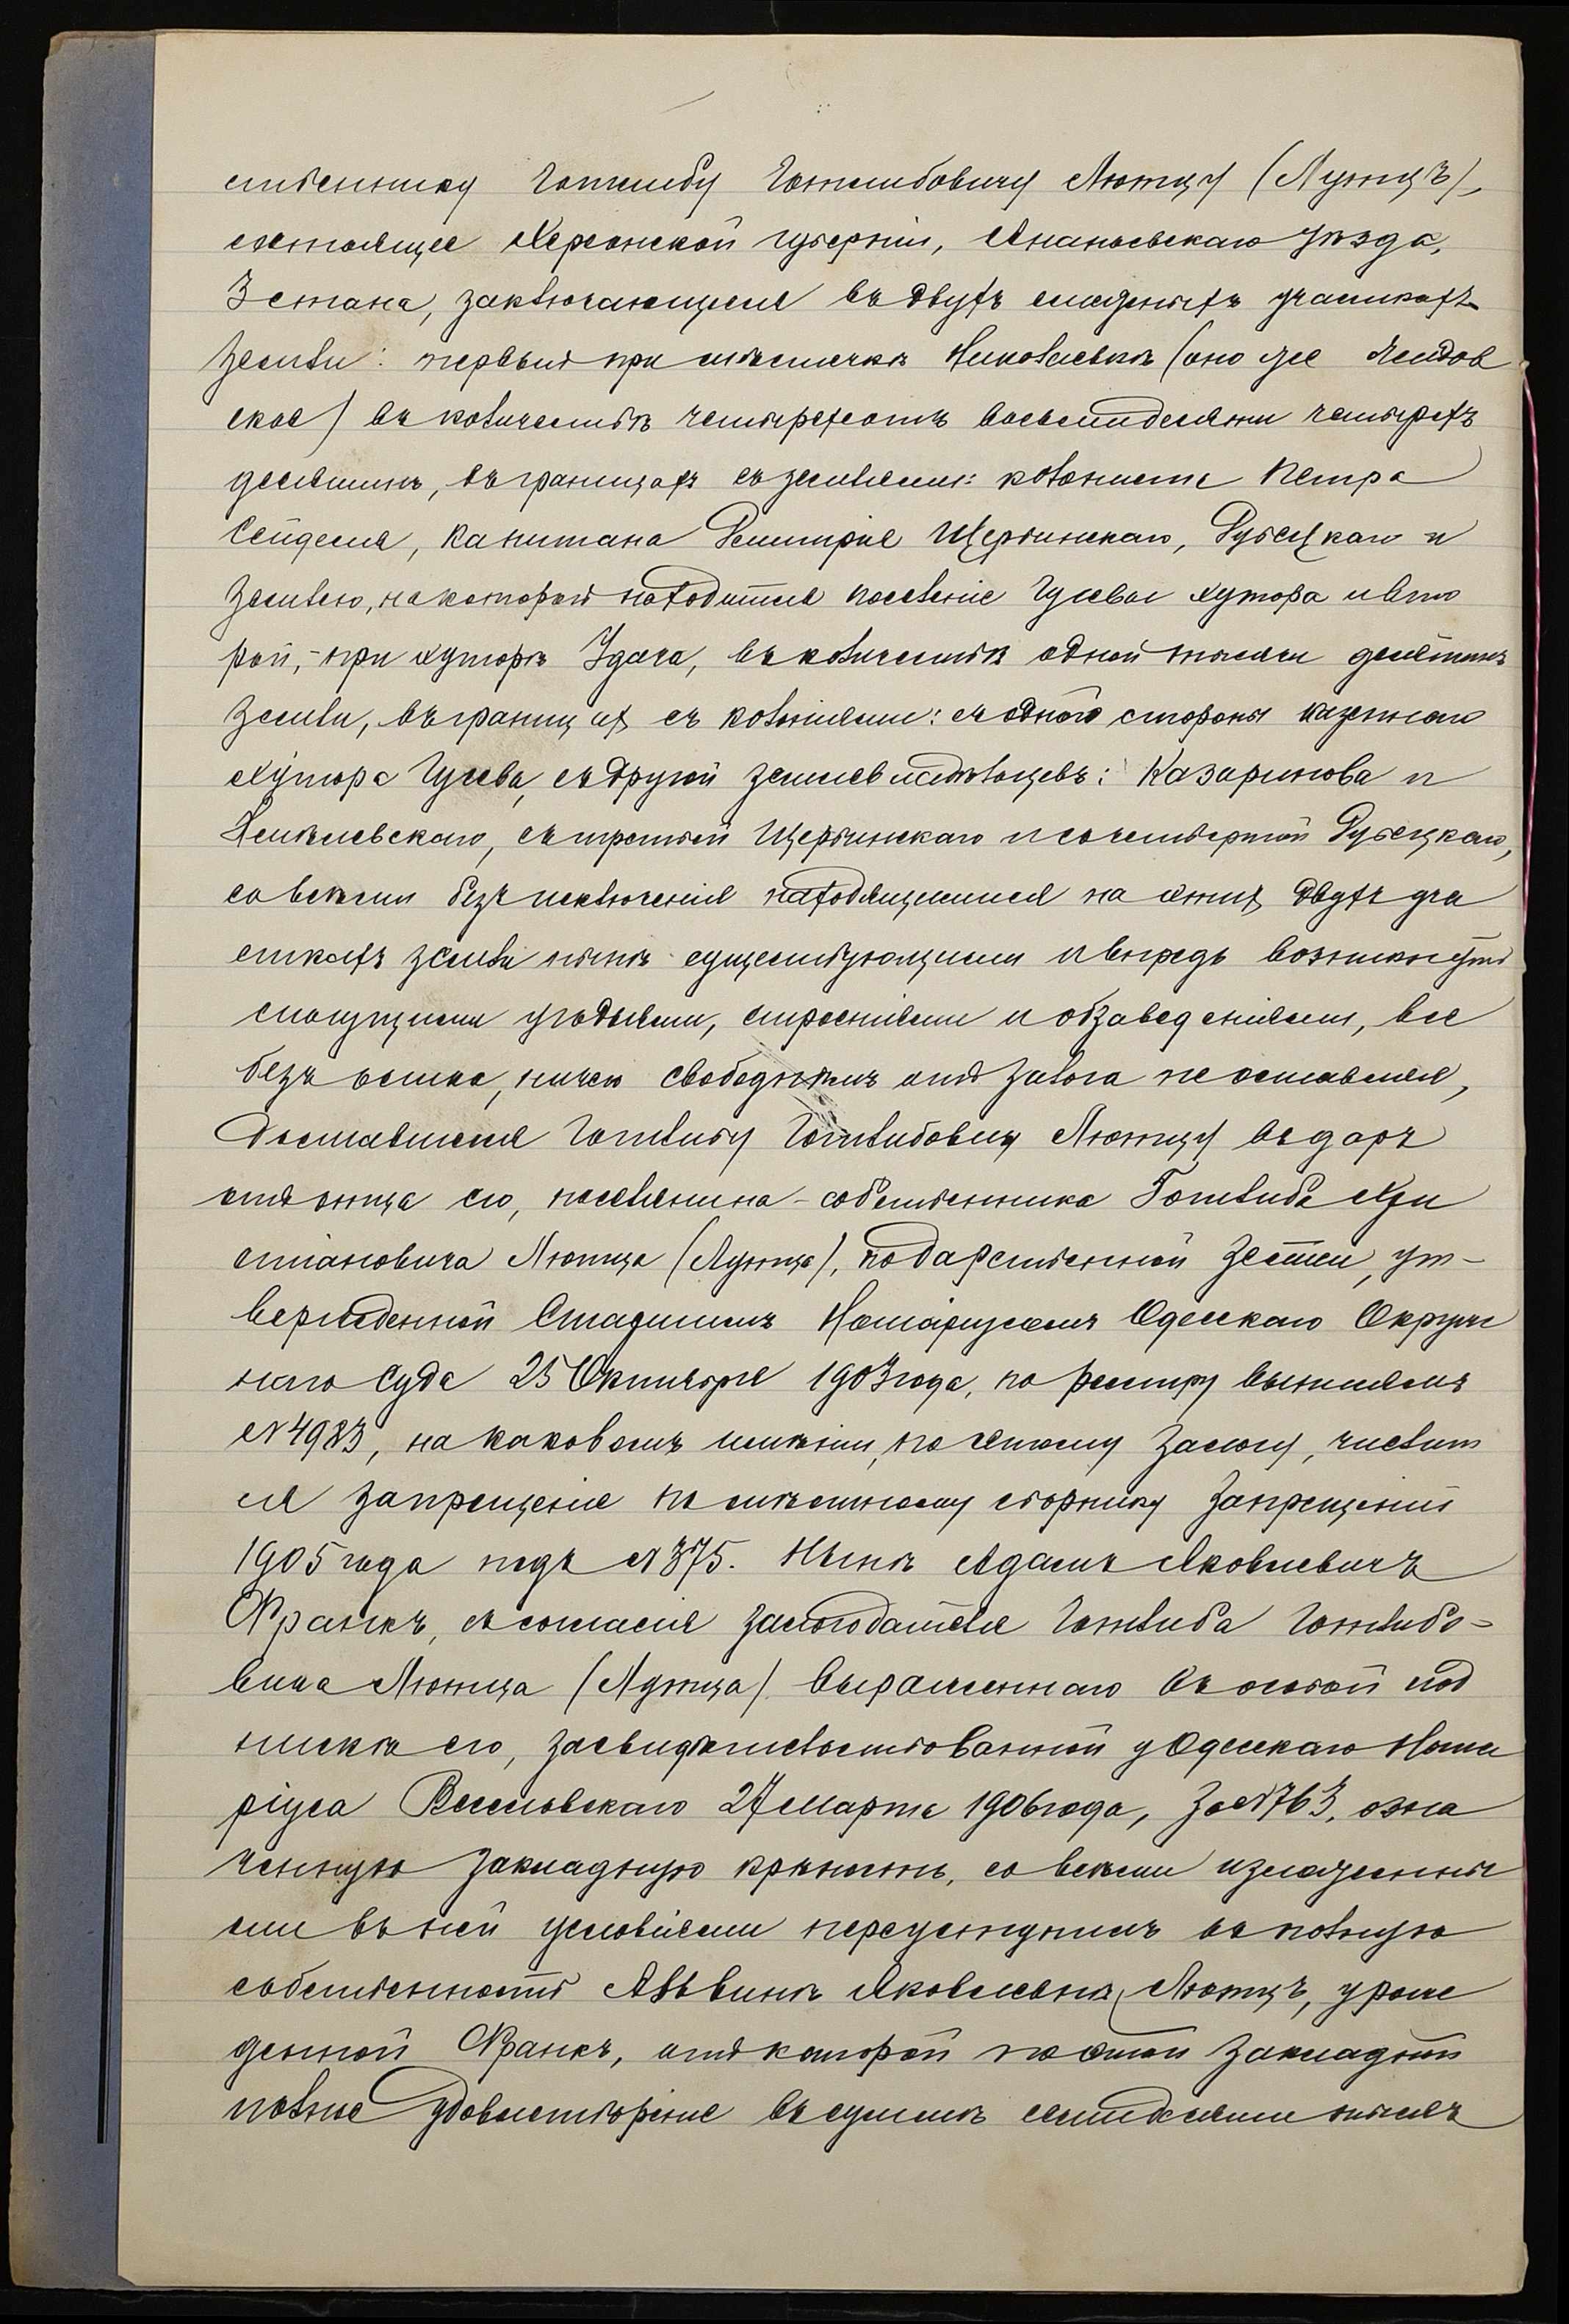 ственнику Готлибу Готлибовичу Лютцу (Лутцъ),
состоящее Херсонской губерніи, Ананьевскаго уѣзда,
3 стана, заключающееся въ двухъ смежныхъ участкахъ
земли: первый при мѣстечкѣ Николаевкѣ (оно же Жидов
ское) въ количествѣ четырехсотъ восьмидесяти четырехъ
десятинъ, въ границахъ съ землями: колониста Петра
Сейделя, капитана Димитрія Щербинскаго, Рубецкаго и
землею, на которой находится поселеніе Гусевы хутора и вто
рой, - при хуторѣ Удача, въ количествѣ одной тысячи десятинъ
земли, въ границахъ съ колоніями: съ одной стороны казеннаго
хутора Гусева, съ другой землевладѣльцевъ: Казаринова и
Хмѣлевскаго, съ третьей Щербинскаго и съ четвертой Рубецкаго,
со всѣми безъ исключенія находящимися на этихъ двухъ уча
сткахъ земли нынѣ существующими и впредь возникнуть
могущими угодьями, строеніями и обзаведеніями, все
безъ остатка, ничего свободнымъ отъ залога не оставляя,
доставшееся Готлибу Готлибовичу Лютцу въ даръ
отъ отца его, поселянина-собственника Готлиба Хри
стіановича Лютца (Лутца), по дарственной записи, ут-
вержденной Старшимъ Нотаріусомъ Одесскаго Окруж
наго Суда 25 Октября 1903 года, по реестру выписямъ
№ 4983, на каковомъ имѣніи, по этому залогу, числит
ся запрещеніе по мѣстному сборнику запрещеній
1905 года подъ № 375. Нынѣ Адамъ Яковлевичъ
Франкъ, съ согласія залогодателя Готлиба Готлибо-
вича Лютца (Лутца) выраженнаго въ особой под
пискѣ его, засвидѣтельствованной у Одесскаго Нота
ріуса Веселовскаго 27 марта 1906 года, за № 763, озна
ченную закладную крѣпость, со всѣми изложенны
ми въ ней условіями переуступилъ въ полную
собственность Альвинѣ Яковлевнѣ Лютцъ, урож
денной Франкъ, отъ которой по этой закладной
полное удовлетвореніе въ суммѣ семидесяти тысячъ